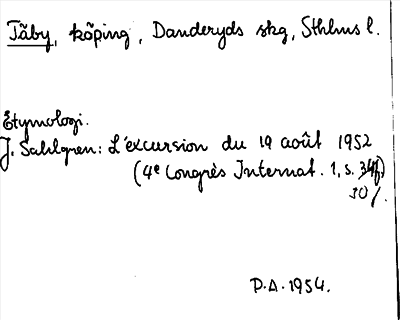 Täby, köping, Danderyds skg, Sthlms l.
Etymologi.
J. Sahlgren: L'excursion du 19 août 1952
(4e Congrès Internat. 1, s.
30/.
P.A. 1954.